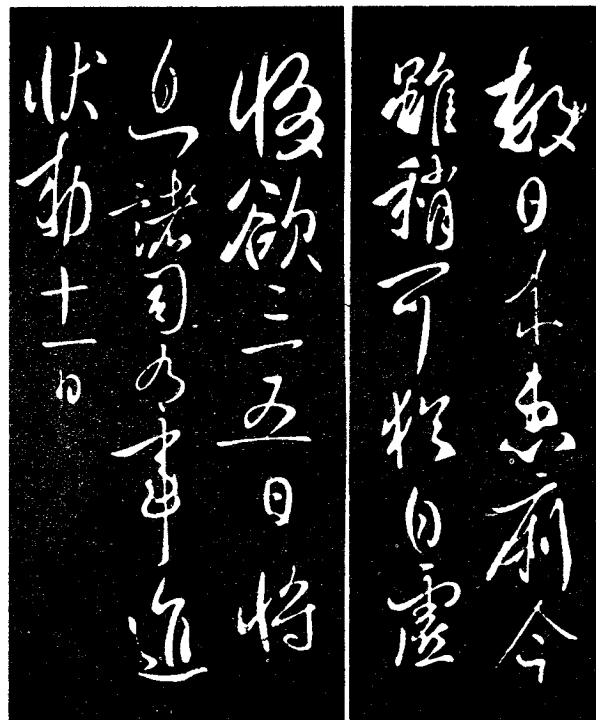 數日來患痢今
雖稍可猶自虛
惙欲三五日將
息諸司有事進
狀勅十一日